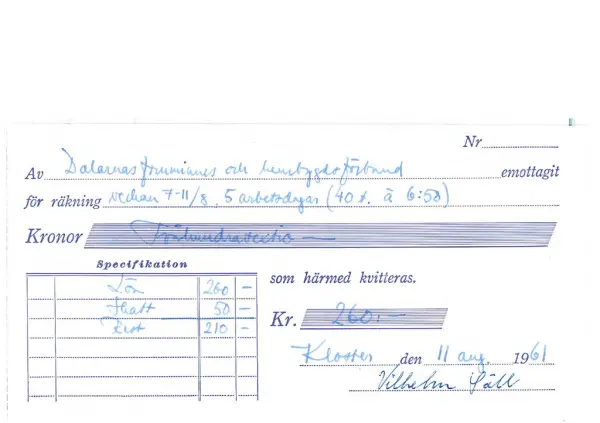 Nr
Av Dalarnas fornminnes och hembygdsförbund emottagit
för räkning veckan 7-11/8, 5 arbetsdagar (40 t. à 6:50)
Kronor Tvåhundrasextio —
Specifikation
Lön 260 —
Skatt 50 —
Rest 210 —
som härmed kvitteras.
Kr. 260:—
Kloster den 11 aug. 1961
Vilhelm Säll